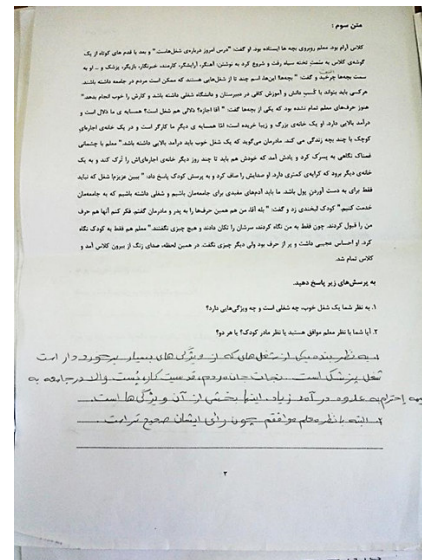 متن سوم :
کلاس آرام بود. معلم روبروی بچه ها ایستاده بود. او گفت: "درس امروز درباره‌ی شغل‌هاست." و بعد با قدم های کوتاه از یک
گوشه‌ی کلاس به سَمتِ تخته سیاه رفت و شروع کرد به نوشتن: آهنگر، آرایشگر، کارمند، خبرنگار، بازیگر، پزشک و .. او به
سمت بچه‌ها چرخید و گفت: " بچه‌ها! این‌ها، اسم چند تا از شغل‌هایی هستند که ممکن است مردم در جامعه داشته باشند.
هرکسی باید بتواند با کَسبِ دانش و آموزش کافی در دبیرستان و دانشگاه شغلی داشته باشد و کارش را خوب انجام بدهد."
هنوز حرف‌های معلم تمام نشده بود که یکی از بچه‌ها گفت: " آقا اجازه؟ دلالی هم شغل است؟ همسایه ی ما دلال است و
درآمد بالایی دارد. او یک خانه‌ی بزرگ و زیبا خریده است؛ امّا همسایه ی دیگر ما کارگر است و در یک خانه‌ی اجاره‌ایِ
کوچک با چند بچه زندگی می کند. مادرمان می‌گوید که یک شغل خوب باید درآمد بالایی داشته باشد." معلم با چشمانی
غمناک نگاهی به پسرک کرد و یادش آمد که خودش هم باید تا چند روز دیگر خانه‌ی اجاره‌ای‌اش را تَرک کند و به یک
خانه‌ی دیگر برود که کرایه‌ی کمتری دارد. او صدایش را صاف کرد و به پرسش کودک پاسخ داد: " ببین عزیزم! شغل که نباید
فقط برای به دست آوردنِ پول باشد. ما باید آدم‌های مفیدی برای جامعه‌مان باشیم و شغلی داشته باشیم که به جامعه‌مان
خدمت کنیم." کودک لبخندی زد و گفت: " بله آقا، من هم همین حرف‌ها را به پدر و مادرمان گفتم. فکر کنم آنها هم حرف
من را قبول کردند. چون فقط به من نگاه کردند، سرشان را تکان دادند و هیچ چیزی نگفتند." معلم هم فقط به کودک نگاه
کرد. او احساس عجیبی داشت و پر از حرف بود ولی دیگر چیزی نگفت. در همین لحظه، صدای زنگ از بیرون کلاس آمد و
کلاس تمام شد.
به پرسش‌های زیر پاسخ دهید.
۱. به نظر شما یک شغل خوب، چه شغلی است و چه ویژگی‌هایی دارد؟
۲. آیا شما با نظر معلم موافق هستید یا نظر مادر کودک؟ یا هر دو؟
۱- به نظر بنده یکی از شغل های که از ویژگی های بسیار برخوردار است
شغل پزشکی است. نجات جان مردم، قدسیت کار، پُست والا در جامعه به
احترام به علاوه درآمد زیاد، اینها بخشی از آن ویژگی ها است.
۲- البته با نظر معلم موافقم چون رای ایشان صحیح تر است.
۲